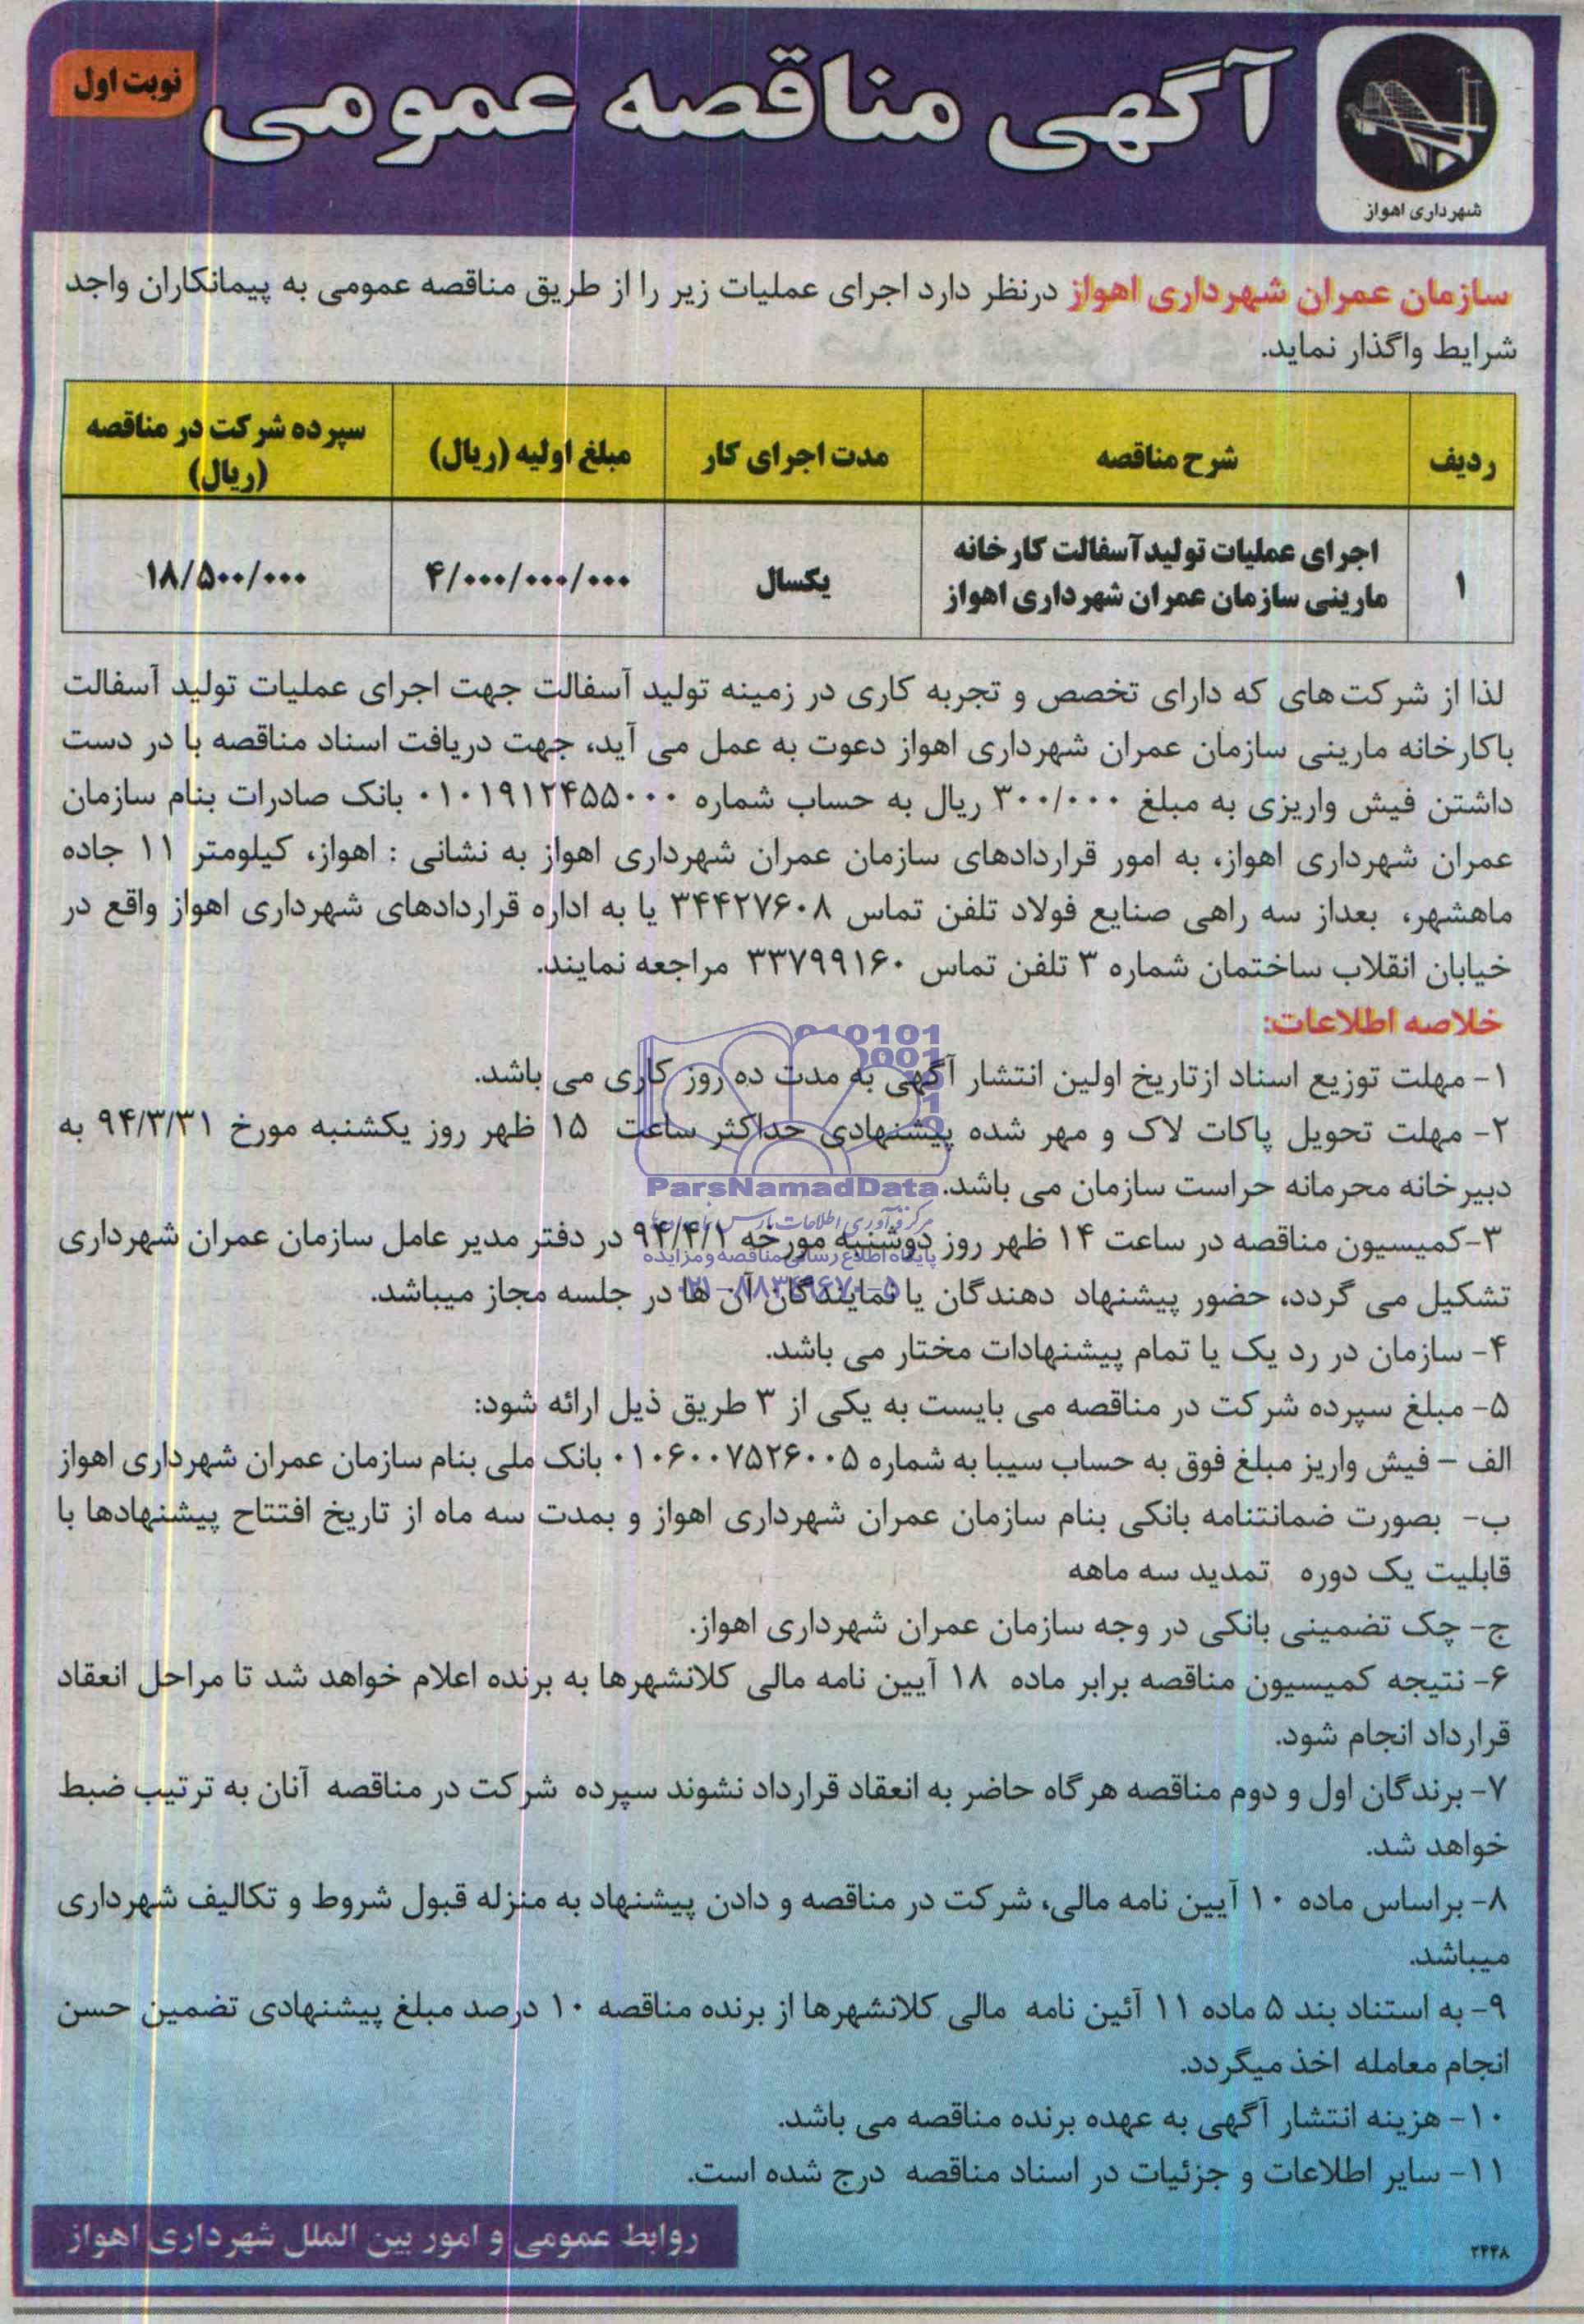 آگهی مناقصه عمومی
نوبت اول
شهرداری اهواز
سازمان عمران شهرداری اهواز درنظر دارد اجرای عملیات زیر را از طریق مناقصه عمومی به پیمانکاران واجد
شرایط واگذار نماید.
ردیف	شرح مناقصه	مدت اجرای کار	مبلغ اولیه (ریال)	سپرده شرکت در مناقصه
(ریال)
۱	اجرای عملیات تولید آسفالت کارخانه
مارینی سازمان عمران شهرداری اهواز	یکسال	۴/۰۰۰/۰۰۰/۰۰۰	۱۸/۵۰۰/۰۰۰
لذا از شرکت های که دارای تخصص و تجربه کاری در زمینه تولید آسفالت جهت اجرای عملیات تولید آسفالت
باکارخانه مارینی سازمان عمران شهرداری اهواز دعوت به عمل می آید، جهت دریافت اسناد مناقصه با در دست
داشتن فیش واریزی به مبلغ ۳۰۰/۰۰۰ ریال به حساب شماره ۰۱۰۱۹۱۲۴۵۵۰۰۰ بانک صادرات بنام سازمان
عمران شهرداری اهواز، به امور قراردادهای سازمان عمران شهرداری اهواز به نشانی : اهواز، کیلومتر ۱۱ جاده
ماهشهر، بعداز سه راهی صنایع فولاد تلفن تماس ۳۴۴۲۷۶۰۸ یا به اداره قراردادهای شهرداری اهواز واقع در
خیابان انقلاب ساختمان شماره ۳ تلفن تماس ۳۳۷۹۹۱۶۰ مراجعه نمایند.
خلاصه اطلاعات:
۱- مهلت توزیع اسناد ازتاریخ اولین انتشار آگهی به مدت ده روز کاری می باشد.
۲- مهلت تحویل پاکات لاک و مهر شده پیشنهادی حداکثر ساعت ۱۵ ظهر روز یکشنبه مورخ ۹۴/۳/۳۱ به
دبیرخانه محرمانه حراست سازمان می باشد.
ParsNamadData
مرکز فرآوری اطلاعات پارس نماد داده ها
۳-کمیسیون مناقصه در ساعت ۱۴ ظهر روز دوشنبه مورخه ۹۴/۴/۱ در دفتر مدیر عامل سازمان عمران شهرداری
پایگاه اطلاع رسانی مناقصه و مزایده
تشکیل می گردد، حضور پیشنهاد دهندگان یا نمایندگان آن ها در جلسه مجاز میباشد.
۰۲۱-۸۸۳۴۹۶۷۰-۵
۴- سازمان در رد یک یا تمام پیشنهادات مختار می باشد.
۵- مبلغ سپرده شرکت در مناقصه می بایست به یکی از ۳ طریق ذیل ارائه شود:
الف – فیش واریز مبلغ فوق به حساب سیبا به شماره ۰۱۰۶۰۰۷۵۲۶۰۰۵ بانک ملی بنام سازمان عمران شهرداری اهواز
ب- بصورت ضمانتنامه بانکی بنام سازمان عمران شهرداری اهواز و بمدت سه ماه از تاریخ افتتاح پیشنهادها با
قابلیت یک دوره تمدید سه ماهه
ج- چک تضمینی بانکی در وجه سازمان عمران شهرداری اهواز.
۶- نتیجه کمیسیون مناقصه برابر ماده ۱۸ آیین نامه مالی کلانشهرها به برنده اعلام خواهد شد تا مراحل انعقاد
قرارداد انجام شود.
۷- برندگان اول و دوم مناقصه هر گاه حاضر به انعقاد قرارداد نشوند سپرده شرکت در مناقصه آنان به ترتیب ضبط
خواهد شد.
۸- براساس ماده ۱۰ آیین نامه مالی، شرکت در مناقصه و دادن پیشنهاد به منزله قبول شروط و تکالیف شهرداری
میباشد.
۹- به استناد بند ۵ ماده ۱۱ آئین نامه مالی کلانشهرها از برنده مناقصه ۱۰ درصد مبلغ پیشنهادی تضمین حسن
انجام معامله اخذ میگردد.
۱۰- هزینه انتشار آگهی به عهده برنده مناقصه می باشد.
۱۱- سایر اطلاعات و جزئیات در اسناد مناقصه درج شده است.
روابط عمومی و امور بین الملل شهرداری اهواز
۲۴۴۸